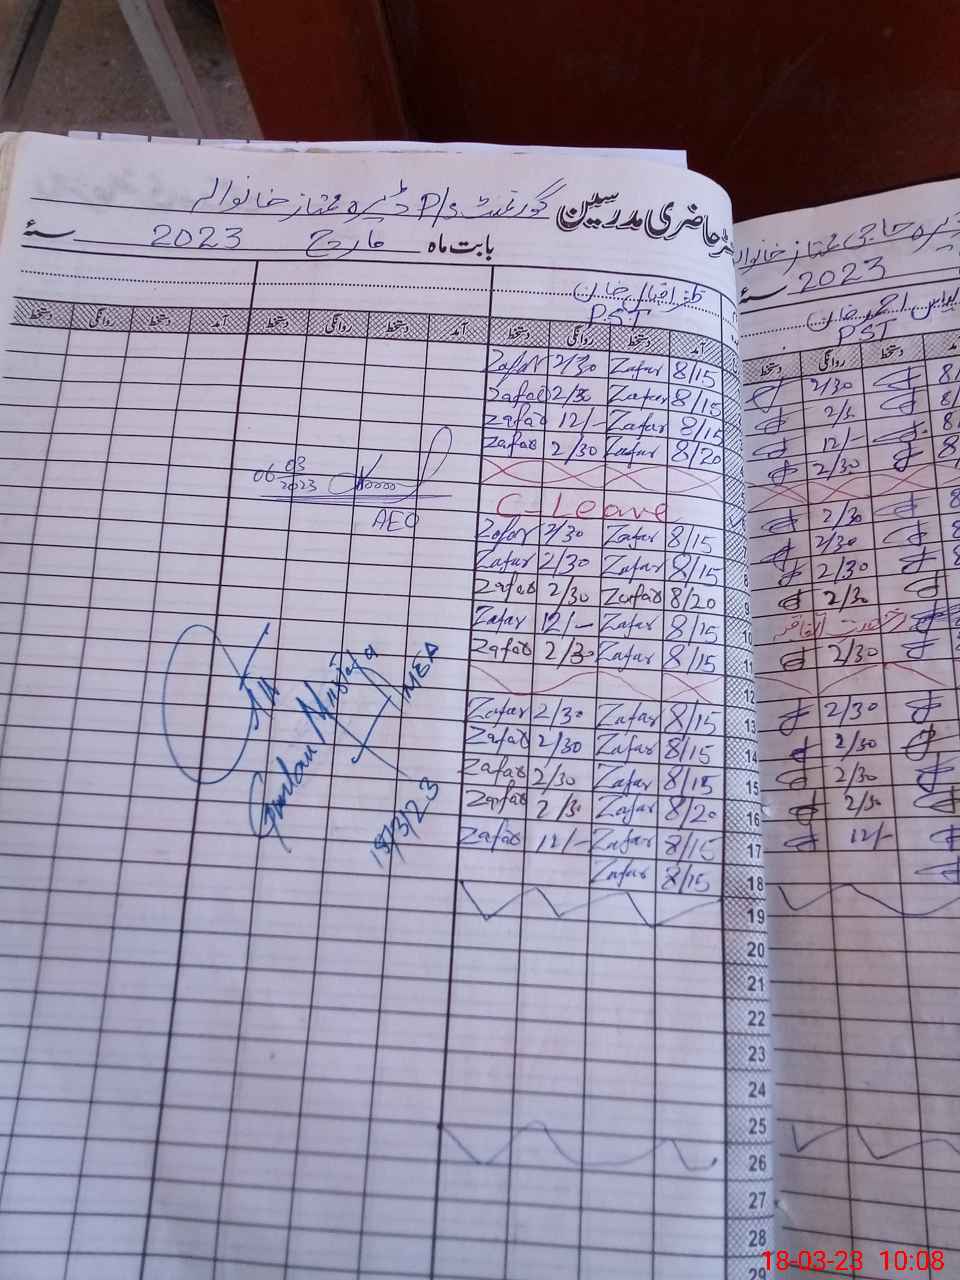 حاضری مدرسین گورنمنٹ P/S ڈیرہ ممتاز خانوالہ
بابت ماہ مارچ 2023 سنۂ
ظفر اقبال خان
PST
آمد دستخط روانگی دستخط آمد دستخط روانگی دستخط آمد دستخط روانگی دستخط
8/15 Zafar 2/30 Zafar
8/15 Zafar 2/30 Zafar
8/15 Zafar 12/- Zafar
8/20 Zafar 2/30 Zafar
C-Leave
8/15 Zafar 2/30 Zafar
8/15 Zafar 2/30 Zafar
8/20 Zafar 2/30 Zafar
8/15 Zafar 12/- Zafar
8/15 Zafar 2/30 Zafar
8/15 Zafar 2/30 Zafar
8/15 Zafar 2/30 Zafar
8/15 Zafar 2/30 Zafar
8/20 Zafar 2/30 Zafar
8/15 Zafar 12/- Zafar
8/15 Zafar
06 03 2023
AEO
Ghulam Mustafa
MEA
18/3/23
8
9
10
11
12
13
14
15
16
17
18
19
20
21
22
23
24
25
26
27
28
29
ڈیرہ حاجی ممتاز خانوالہ
2023 سنۂ
خان
PST
روانگی دستخط
دستخط
2/30
2/30
12/-
2/30
2/30
2/30
2/30
2/30
2/30
2/30
2/30
2/30
2/30
12/-
18-03-23 10:08